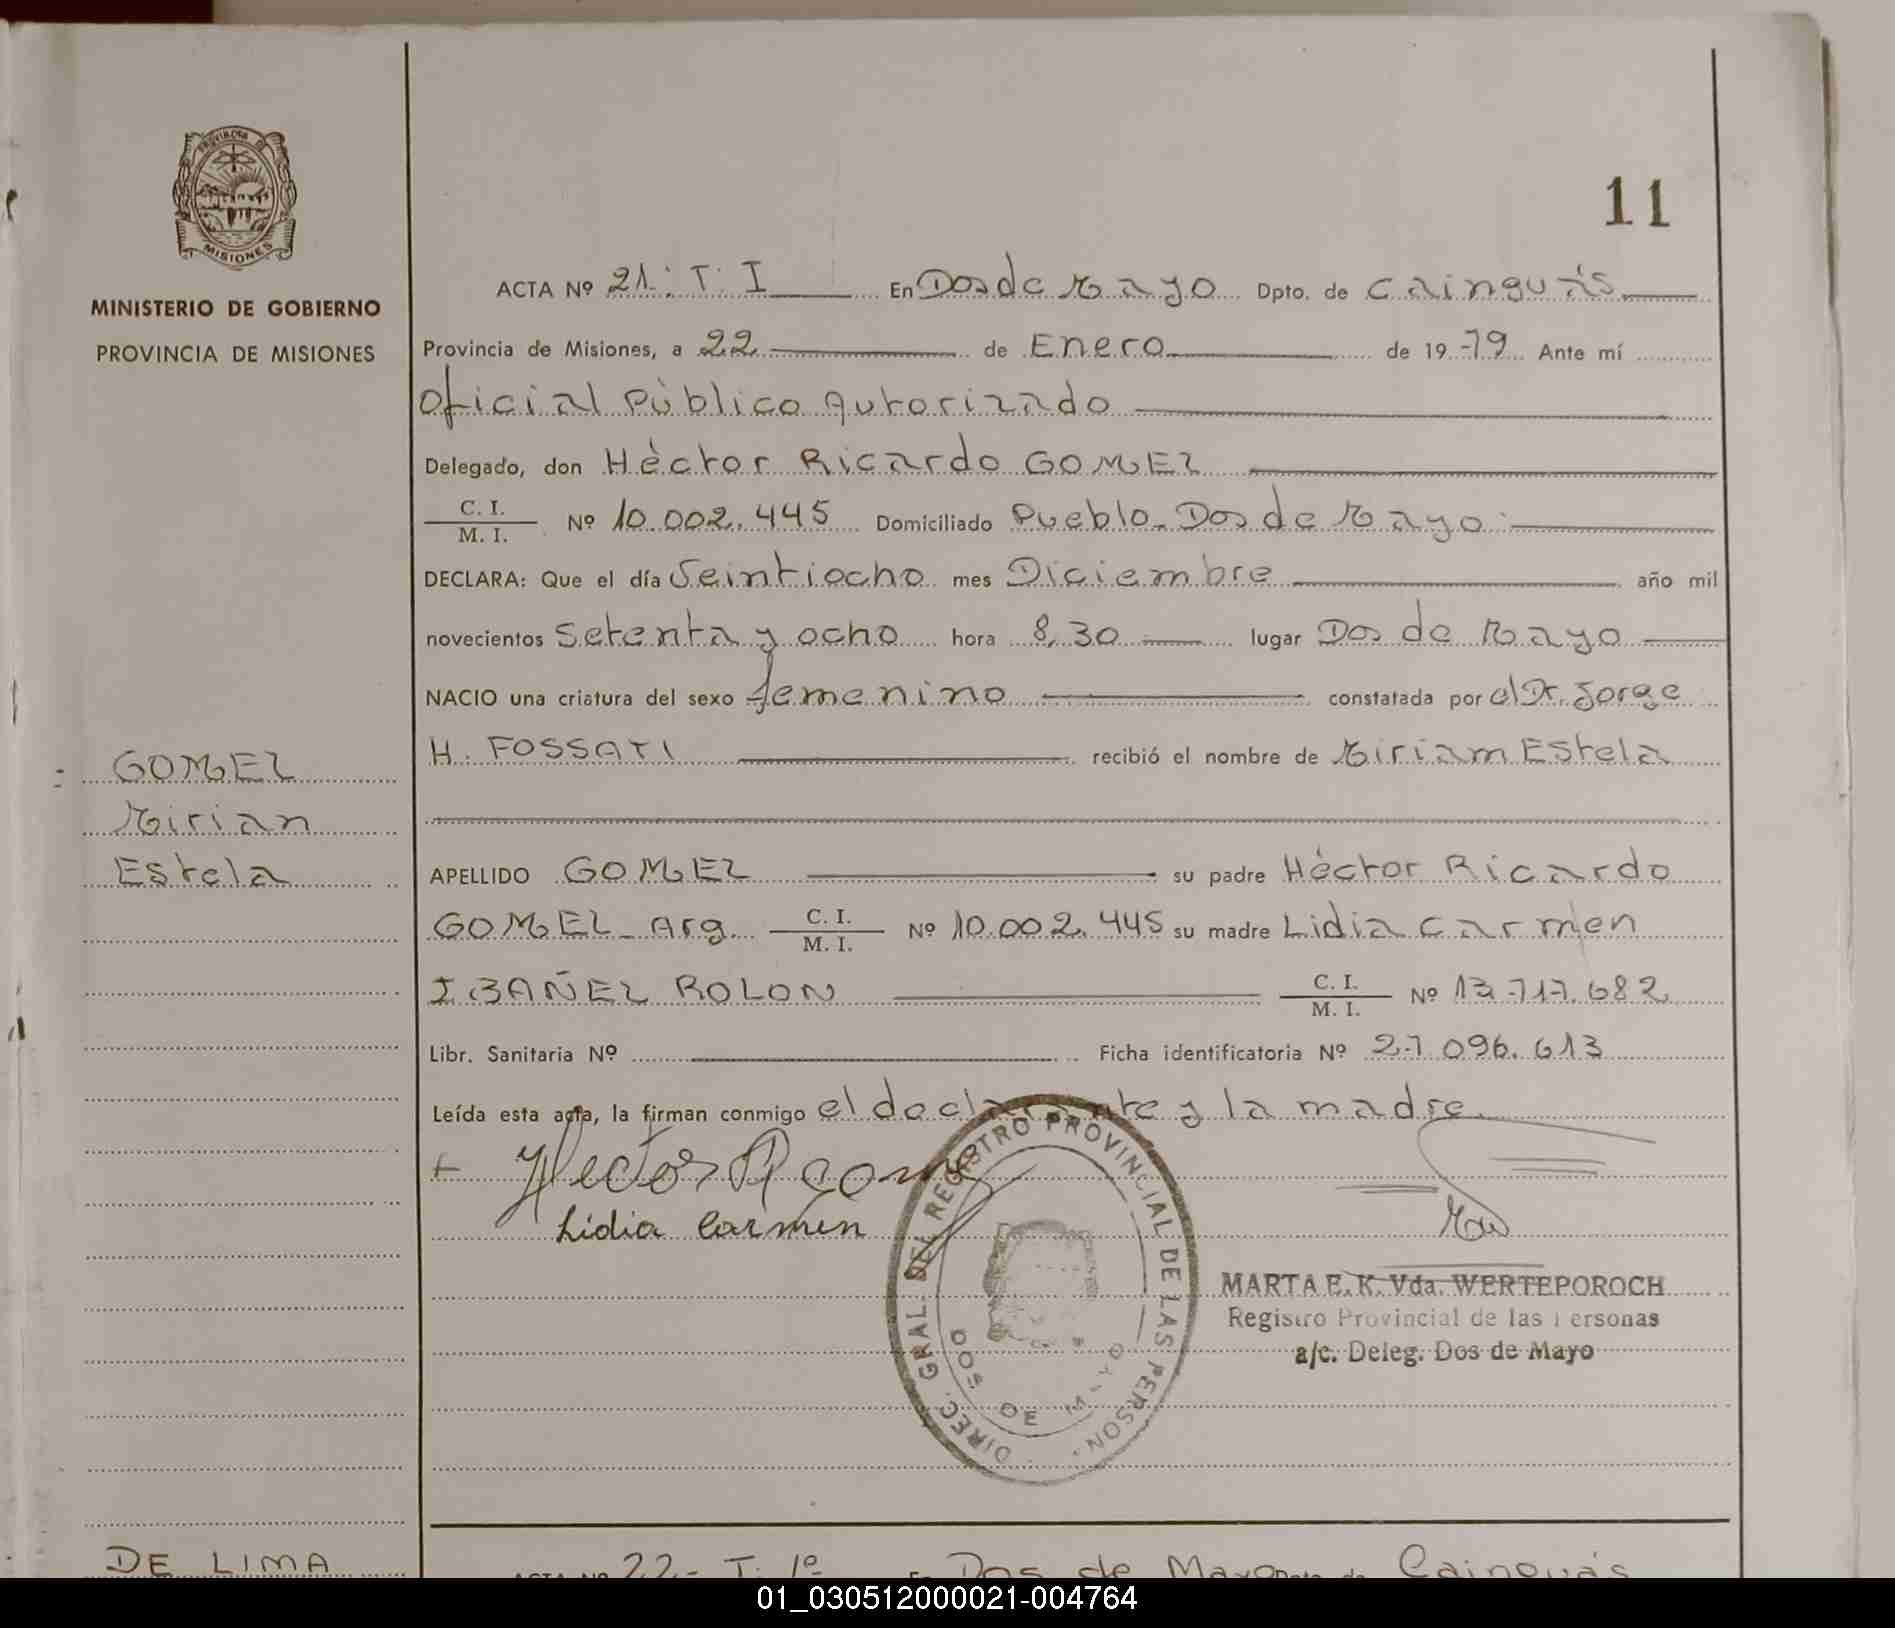 PROVINCIA DE
MISIONES
MINISTERIO DE GOBIERNO
PROVINCIA DE MISIONES
11
ACTA Nº 21: T: I En Dos de Mayo Dpto. de Cainguás
Provincia de Misiones, a 22 de Enero de 1979 Ante mí
Oficial Público Autorizado
Delegado, don Héctor Ricardo GOMEZ
C. I.
M. I.
Nº 10.002.445 Domiciliado Pueblo Dos de Mayo
DECLARA: Que el día Veintiocho mes Diciembre año mil
novecientos setenta y ocho hora 8,30 lugar Dos de Mayo
NACIO una criatura del sexo femenino constatada por el Dr. Jorge
H. FOSSATI recibió el nombre de Miriam Estela
GOMEZ
Mirian
Estela
APELLIDO GOMEZ su padre Héctor Ricardo
GOMEZ Arg. C. I. M. I. Nº 10.002.445 su madre Lidia Carmen
IBAÑEZ ROLON C. I. M. I. Nº 13.717.682
Libr. Sanitaria Nº Ficha identificatoria Nº 27.096.613
Leída esta acta, la firman conmigo el declarante y la madre.
Hector R Gomez
Lidia Carmen
DIREC. GRAL. DEL REGISTRO PROVINCIAL DE LAS PERSON.
DOS DE MAYO
MARTA E. K. Vda. WERTEPOROCH
Registro Provincial de las Personas
a/c. Deleg. Dos de Mayo
DE LIMA
ACTA Nº 22- T. 1º En Dos de Mayo Dpto. de Cainguás
01_030512000021-004764